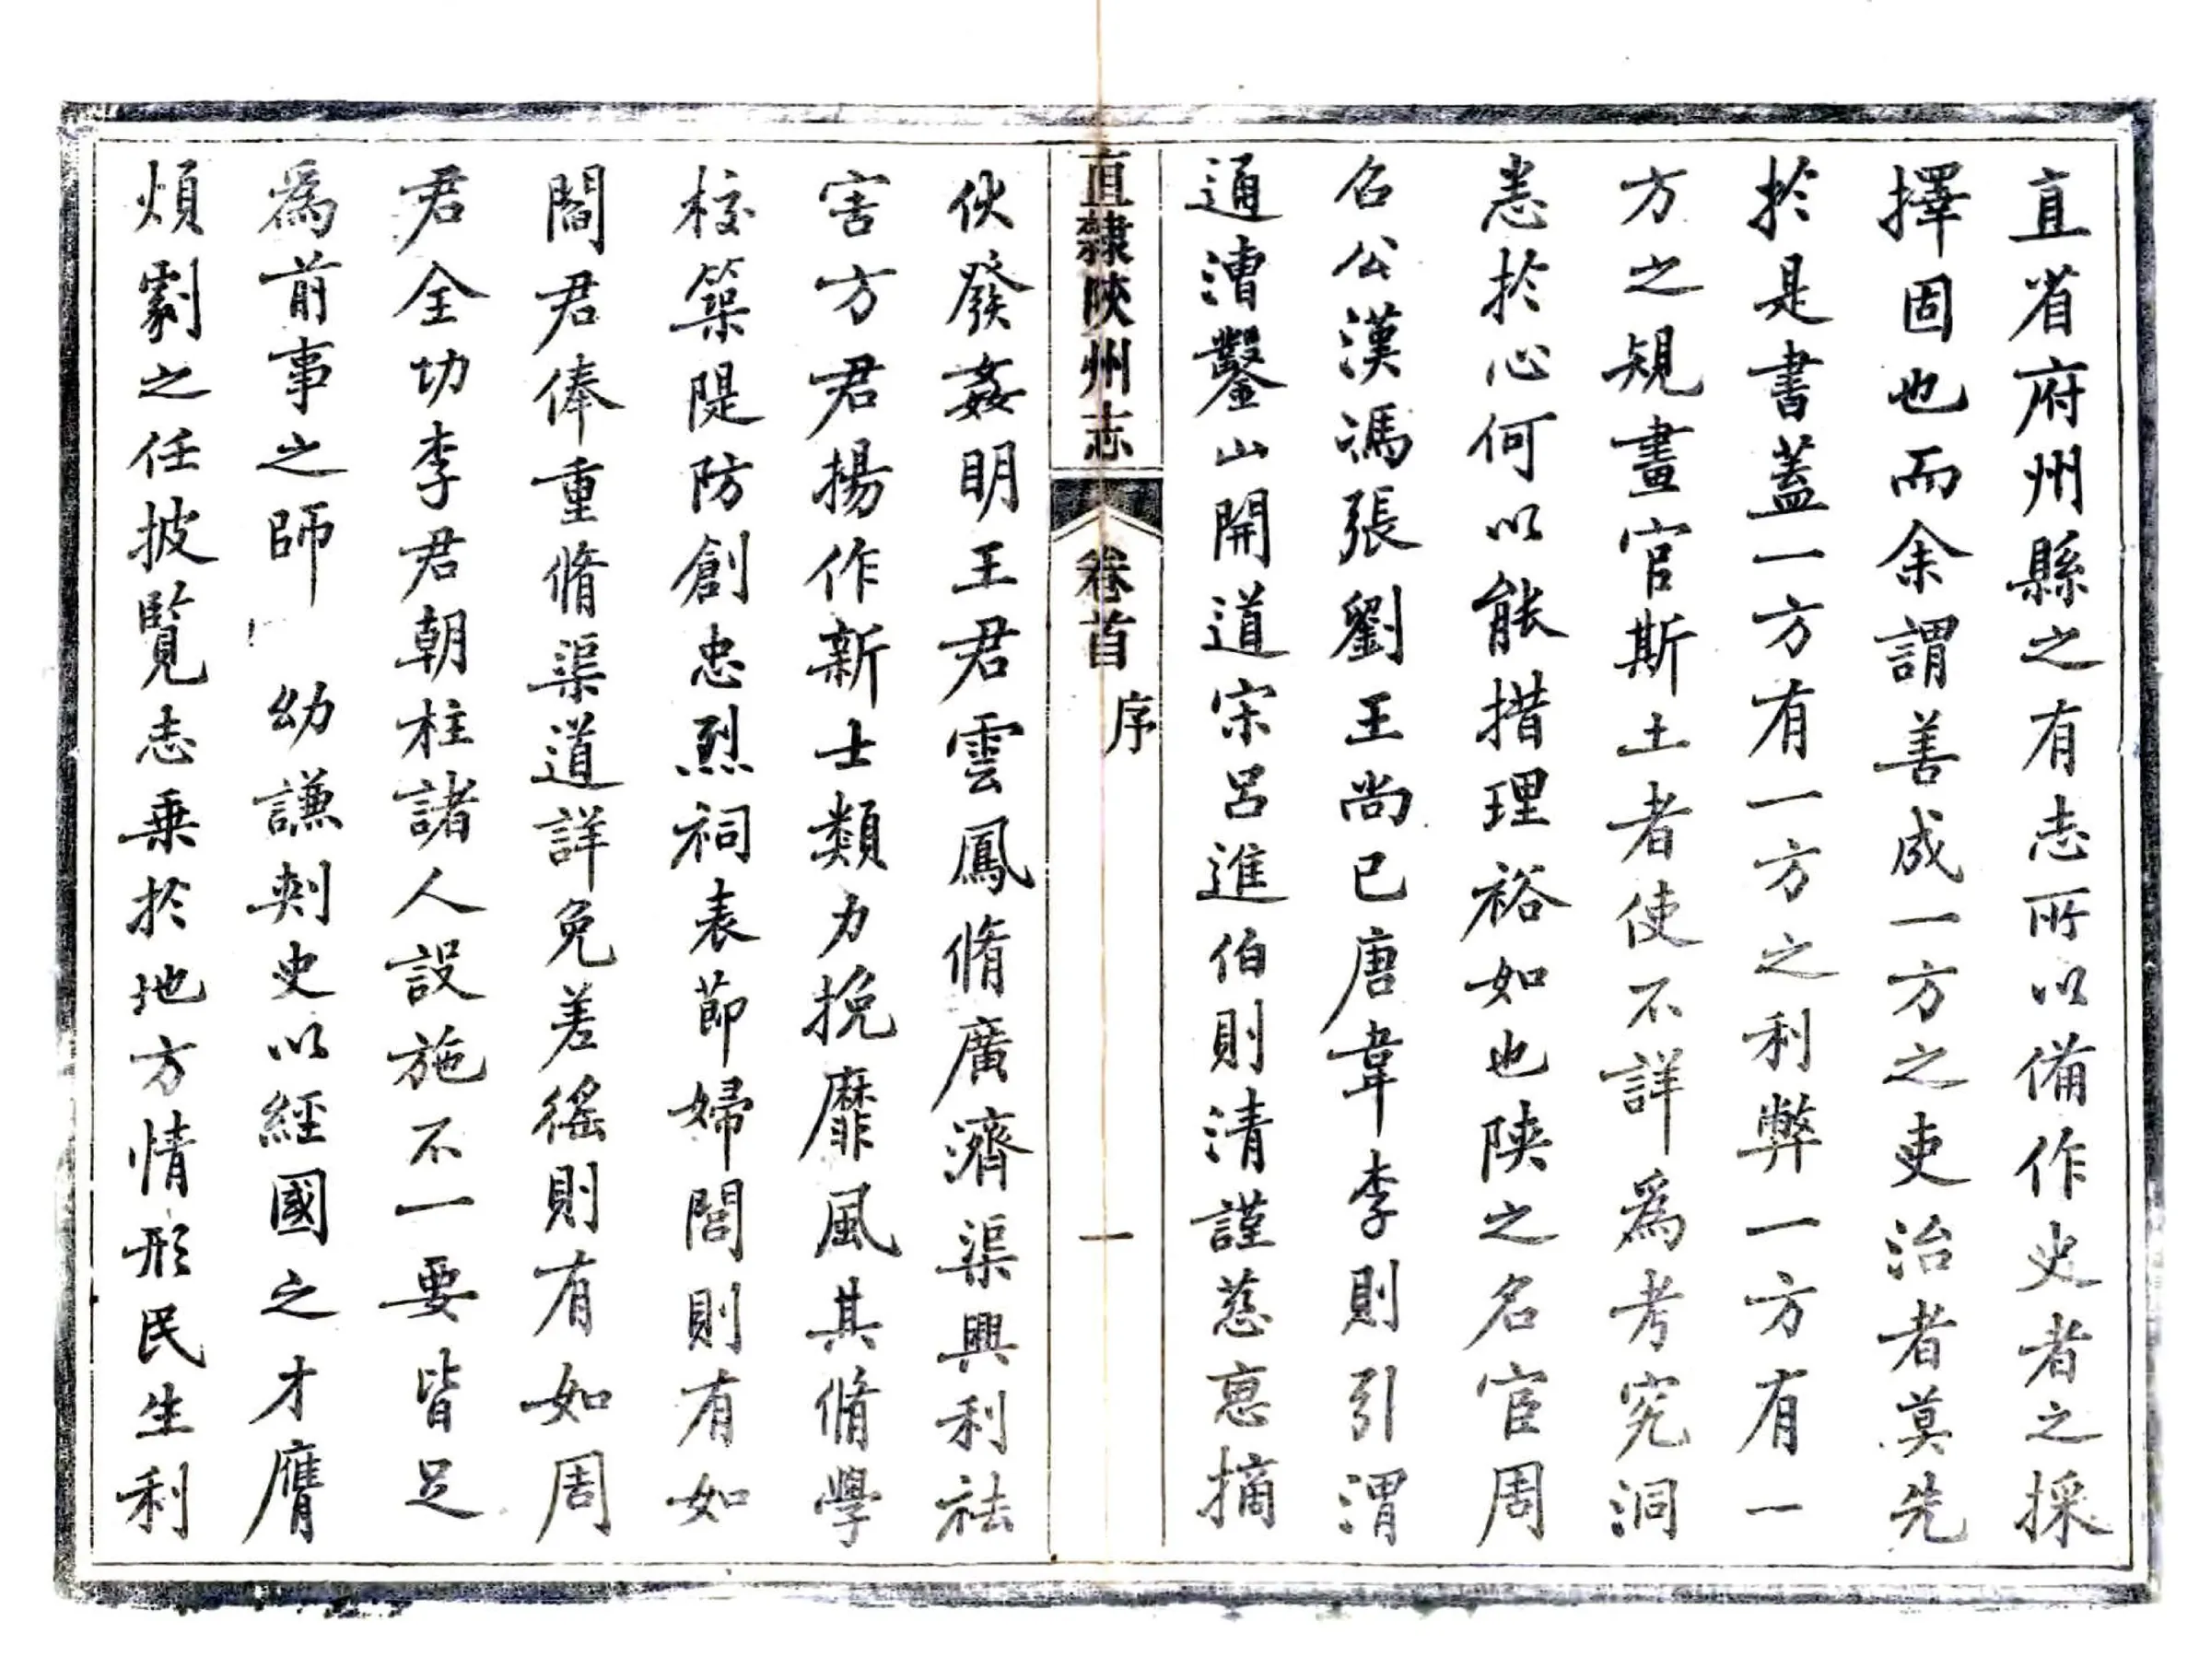 直省府州縣之有志所以備作史者之採
擇固也而余謂善成一方之吏治者莫先
於是書蓋一方有一方之利弊一方有一
方之規畫官斯土者使不詳為考究洞
悉於心何以能措理裕如也陝之名宦周
召公漢馮張劉王尚已唐韋李則引渭
通漕鑿山開道宋呂進伯則清謹慈惠摘
直隸陝州志
卷首
序
一
伏發姦明王君雲鳳脩廣濟渠興利祛
害方君揚作新士類力挽靡風其脩學
校築隄防創忠烈祠表節婦閭則有如
閻君俸重脩渠道詳免差徭則有如周
君全功李君朝柱諸人設施不一要皆足
為前事之師 幼謙刺史以經國之才膺
煩劇之任披覽志乗於地方情形民生利